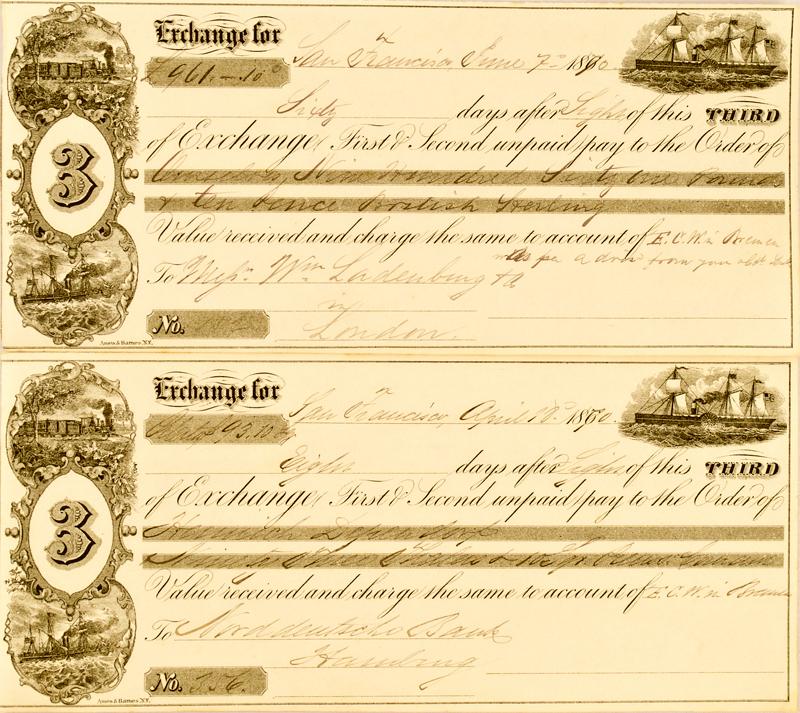 Exchange for
San Francisco, June 7 1870
£961.–.10
3
Sixty days after Sight of this THIRD
of Exchange (First & Second unpaid) pay to the Order of
Nine Hundred Sixty one Pounds
& ten pence British Sterling
Value received and charge the same to account of E.C.W. in Bremen
as per from your
To Messrs. Wm. Ladenburg & Co
in
No.
London.
Ames & Barnes N.Y.
Exchange for
San Francisco, April 1870
93.10
3
Eight days after Sight of this THIRD
of Exchange (First & Second unpaid) pay to the Order of
Heinrich
Ninety Three
Value received and charge the same to account of E.C.W. in Bremen
To Norddeutsche Bank
Hamburg
No. 356.
Ames & Barnes N.Y.